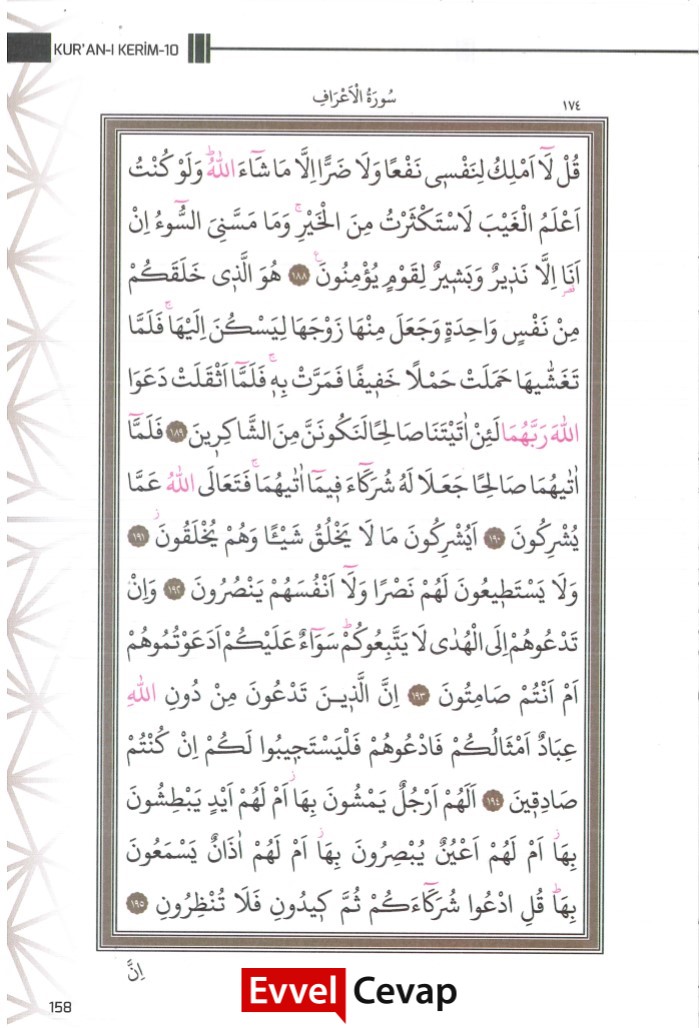 KUR'AN-I KERİM-10
سُورَةُ الْاَعْرَافِ
١٧٤
قُلْ لَٓا اَمْلِكُ لِنَفْسٖي نَفْعًا وَلَا ضَرًّا اِلَّا مَا شَٓاءَ اللّٰهُؕ وَلَوْ كُنْتُ
اَعْلَمُ الْغَيْبَ لَاسْتَكْثَرْتُ مِنَ الْخَيْرِۚ وَمَا مَسَّنِيَ السُّٓوءُ اِنْ
اَنَا۬ اِلَّا نَذٖيرٌ وَبَشٖيرٌ لِقَوْمٍ يُؤْمِنُونَࣖ ﴿١٨٨﴾ هُوَ الَّذٖي خَلَقَكُمْ
مِنْ نَفْسٍ وَاحِدَةٍ وَجَعَلَ مِنْهَا زَوْجَهَا لِيَسْكُنَ اِلَيْهَاۚ فَلَمَّا
تَغَشّٰيهَا حَمَلَتْ حَمْلًا خَفٖيفًا فَمَرَّتْ بِهٖۚ فَلَمَّٓا اَثْقَلَتْ دَعَوَا
اللّٰهَ رَبَّهُمَا لَئِنْ اٰتَيْتَنَا صَالِحًا لَنَكُونَنَّ مِنَ الشَّاكِرٖينَ ﴿١٨٩﴾ فَلَمَّٓا
اٰتٰيهُمَا صَالِحًا جَعَلَا لَهُ شُرَكَٓاءَ فٖيمَٓا اٰتٰيهُمَاۚ فَتَعَالَى اللّٰهُ عَمَّا
يُشْرِكُونَ ﴿١٩٠﴾ اَيُشْرِكُونَ مَا لَا يَخْلُقُ شَيْـًٔا وَهُمْ يُخْلَقُونَؗ ﴿١٩١﴾
وَلَا يَسْتَطٖيعُونَ لَهُمْ نَصْرًا وَلَٓا اَنْفُسَهُمْ يَنْصُرُونَ ﴿١٩٢﴾ وَاِنْ
تَدْعُوهُمْ اِلَى الْهُدٰى لَا يَتَّبِعُوكُمْؕ سَوَٓاءٌ عَلَيْكُمْ اَدَعَوْتُمُوهُمْ
اَمْ اَنْتُمْ صَامِتُونَ ﴿١٩٣﴾ اِنَّ الَّذٖينَ تَدْعُونَ مِنْ دُونِ اللّٰهِ
عِبَادٌ اَمْثَالُكُمْ فَادْعُوهُمْ فَلْيَسْتَجٖيبُوا لَكُمْ اِنْ كُنْتُمْ
صَادِقٖينَ ﴿١٩٤﴾ اَلَهُمْ اَرْجُلٌ يَمْشُونَ بِهَاؗ اَمْ لَهُمْ اَيْدٍ يَبْطِشُونَ
بِهَاؗ اَمْ لَهُمْ اَعْيُنٌ يُبْصِرُونَ بِهَاؗ اَمْ لَهُمْ اٰذَانٌ يَسْمَعُونَ
بِهَاؕ قُلِ ادْعُوا شُرَكَٓاءَكُمْ ثُمَّ كٖيدُونِ فَلَا تُنْظِرُونِ ﴿١٩٥﴾
اِنَّ
158
Evvel Cevap